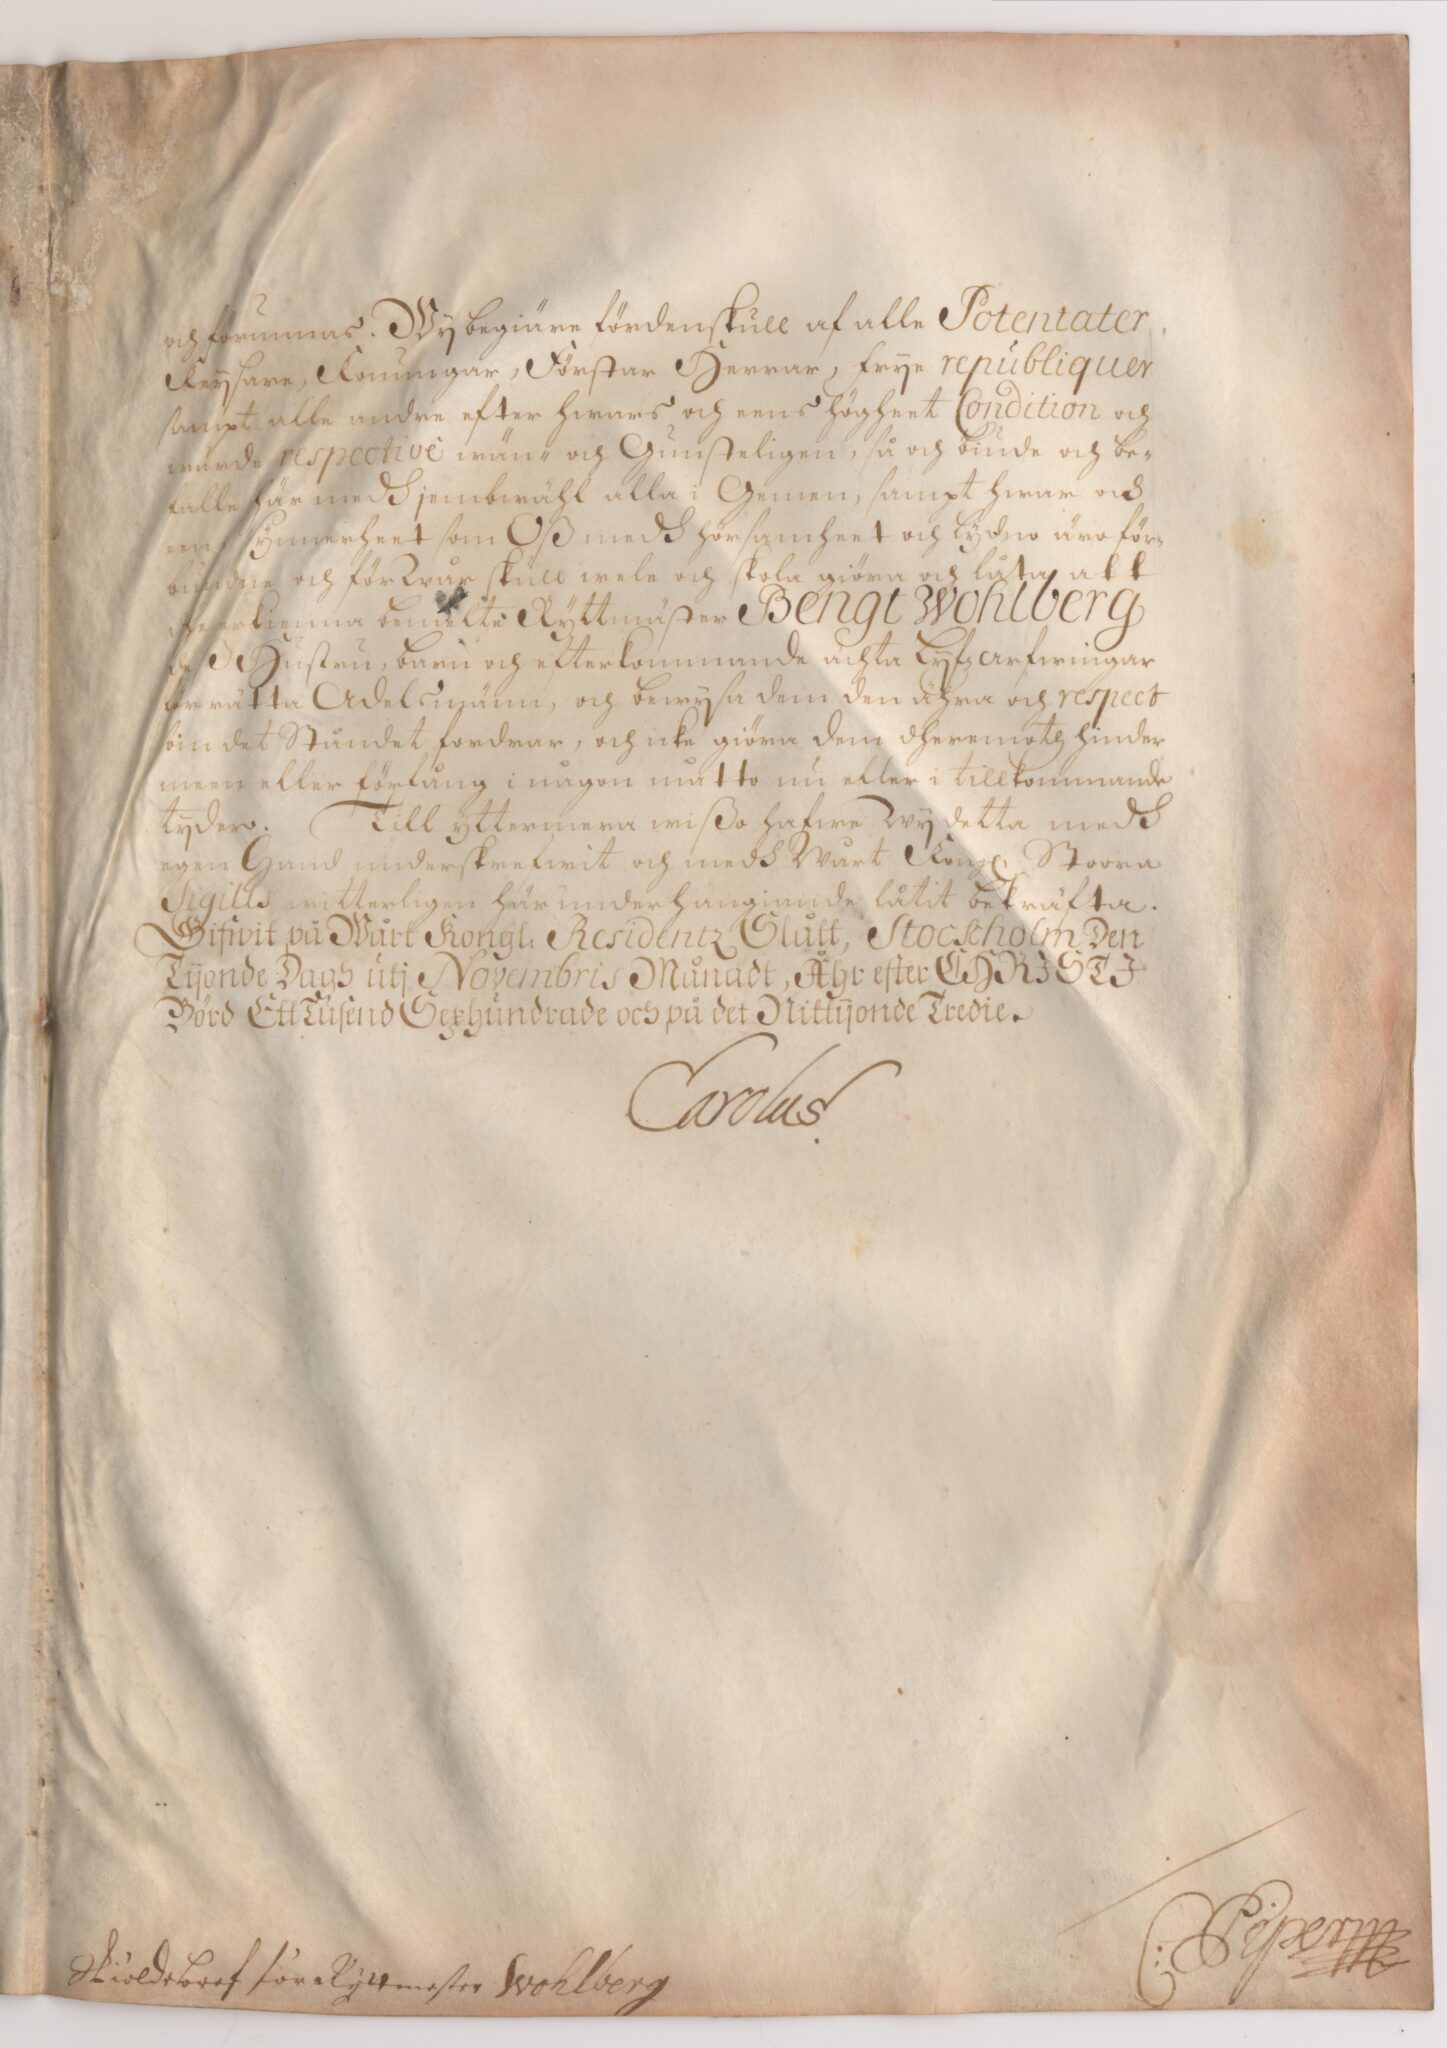 och förunnas. Wy begiäre fördenskull af alle Potentater
Keysare, Konungar, Förstar Herrar, frye republiquer
sampt alle andre efter hwars och eens högheet Condition och
wärde respective wän- och Gunsteligen, så och biude och be-
falle här medh jembwähl alla i Gemen, sampt hwar och
een i synnerheet som Oß medh hörsamheet och lydno äro för-
bundne och för Wår skull wele och skola giöra och låta att
the erkienna bemelte Ryttmäster Bengt Wohlberg
deß Hustru, barn och efterkommande ächta Lyfz arfwingar
för rätta Adelsmänn, och bewysa dem den ähra och respect
som det Ståndet fordrar, och icke giöra dem dheremoth hinder
meen eller förfång i någon matto nu eller i tillkommande
tyder. Till yttermera wißo hafwe Wy detta medh
egen Hand underskrefwit och medh Wårt Kongl. Stoora
Sigills witterligen här underhängiande låtit bekräfta.
Gifwit på Wårt Kongl. Residentz Slått, Stockholm Den
Tijonde Dagh utj Novembris Månadt, Åhr efter CHRISTI
Börd Ett Tusend Sexhundrade och på det Nittijonde Tredie.
Carolus.
C: Piperm
Skiöldebref för Ryttmester Wohlberg